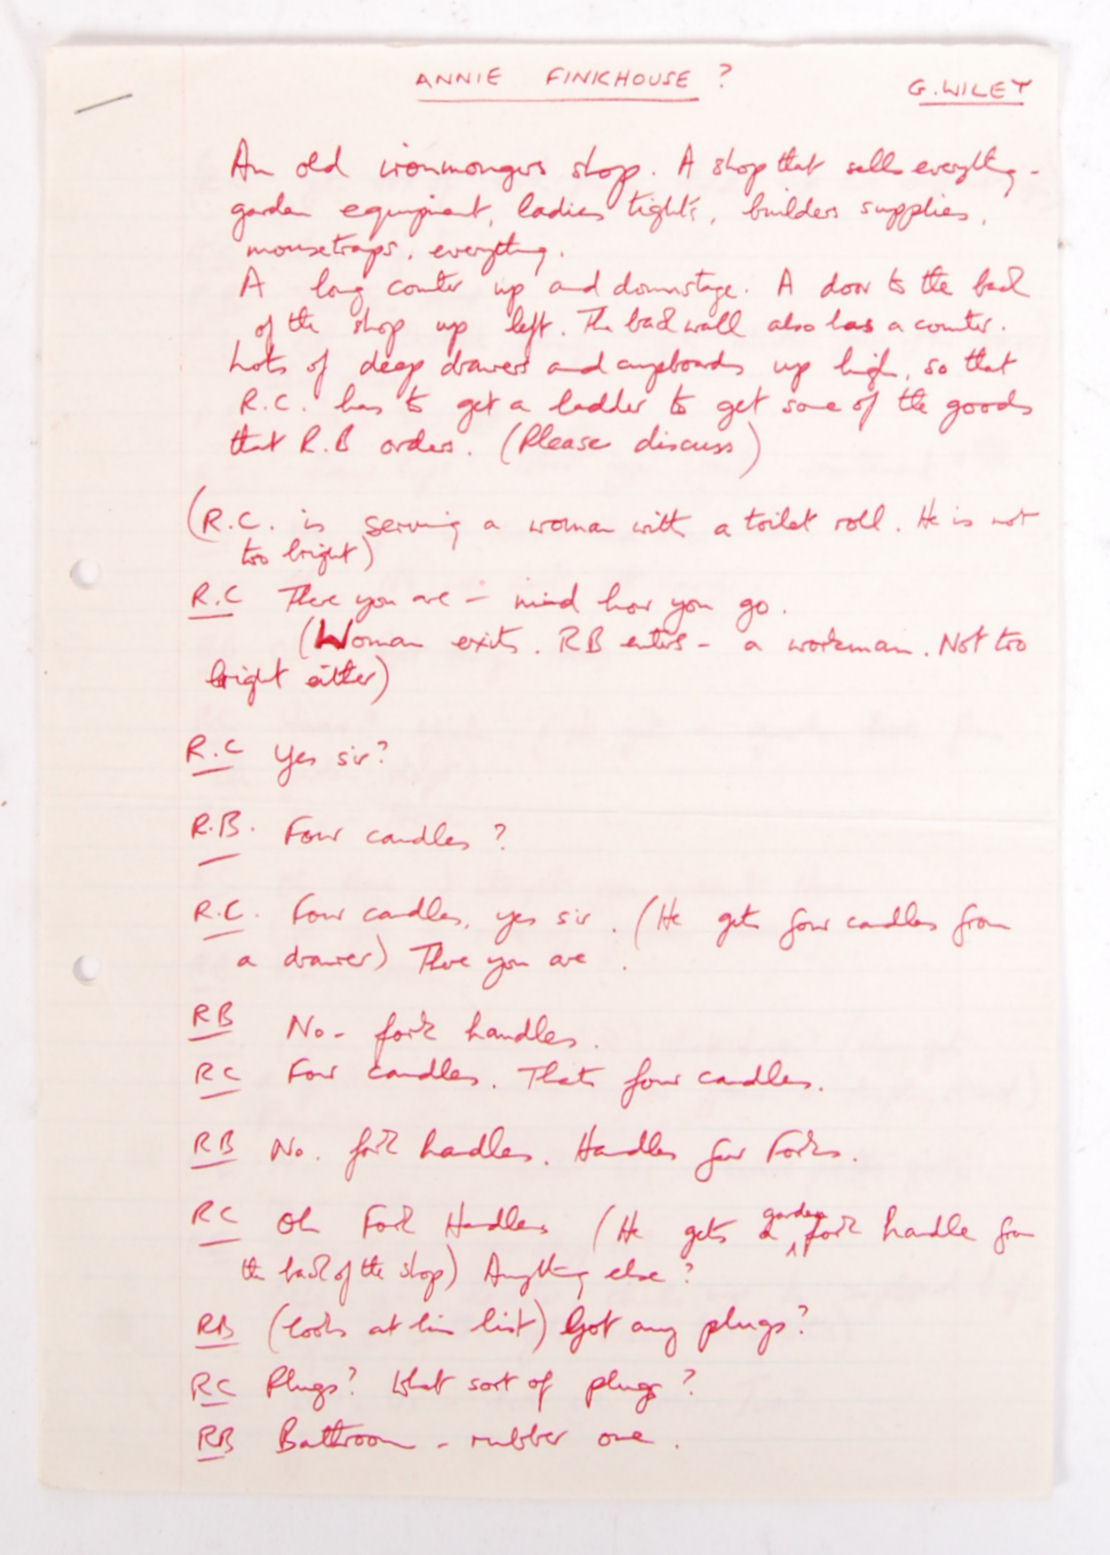 ANNIE FINKHOUSE ?
G. WILEY
An old ironmongers shop. A shop that sells everything -
garden equipment, ladies tights, builders supplies,
mousetraps, everything.
A long counter up and downstage. A door to the back
of the shop up left. The back wall also has a counter.
Lots of deep drawers and cupboards up high, so that
R.C. has to get a ladder to get some of the goods
that R.B orders. (Please discuss)
(R.C. is serving a woman with a toilet roll. He is not
too bright)
R.C There you are - mind how you go.
(Woman exits. RB enters - a workman. Not too
bright either)
R.C Yes sir?
R.B. Four candles ?
R.C. Four candles, yes sir. (He gets four candles from
a drawer) There you are.
RB No - fork handles.
RC Four candles. Thats four candles.
RB No. fork handles. Handles for Forks.
RC Oh Fork Handles (He gets a garden fork handle from
the back of the shop) Anything else ?
RB (looks at his list) Got any plugs?
RC Plugs? What sort of plugs ?
RB Bathroom - rubber one.